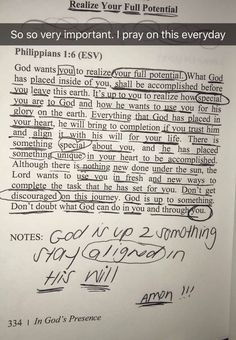 Realize Your Full Potential
So so very important. I pray on this everyday
Philippians 1:6 (ESV)
God wants you to realize your full potential. What God
has placed inside of you, shall be accomplished before
you leave this earth. It's up to you to realize how special
you are to God and how he wants to use you for his
glory on the earth. Everything that God has placed in
your heart, he will bring to completion if you trust him
and align it with his will for your life. There is
something special about you, and he has placed
something unique in your heart to be accomplished.
Although there is nothing new done under the sun, the
Lord wants to use you in fresh and new ways to
complete the task that he has set for you. Don't get
discouraged on this journey. God is up to something.
Don't doubt what God can do in you and through you.
NOTES: God is up 2 something
stay aligned in
His Will
Amen !!!
334 | In God's Presence